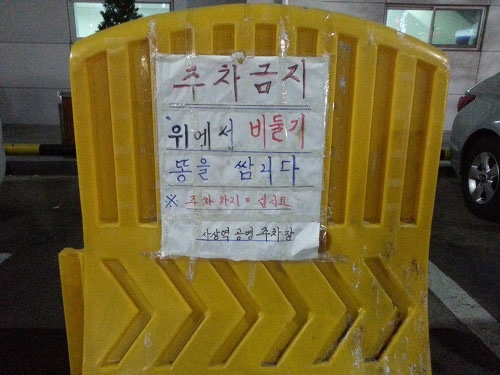 주차금지
위에서 비둘기
똥을 쌉니다
※ 주차하지 마십시요
사상역 공영 주차장